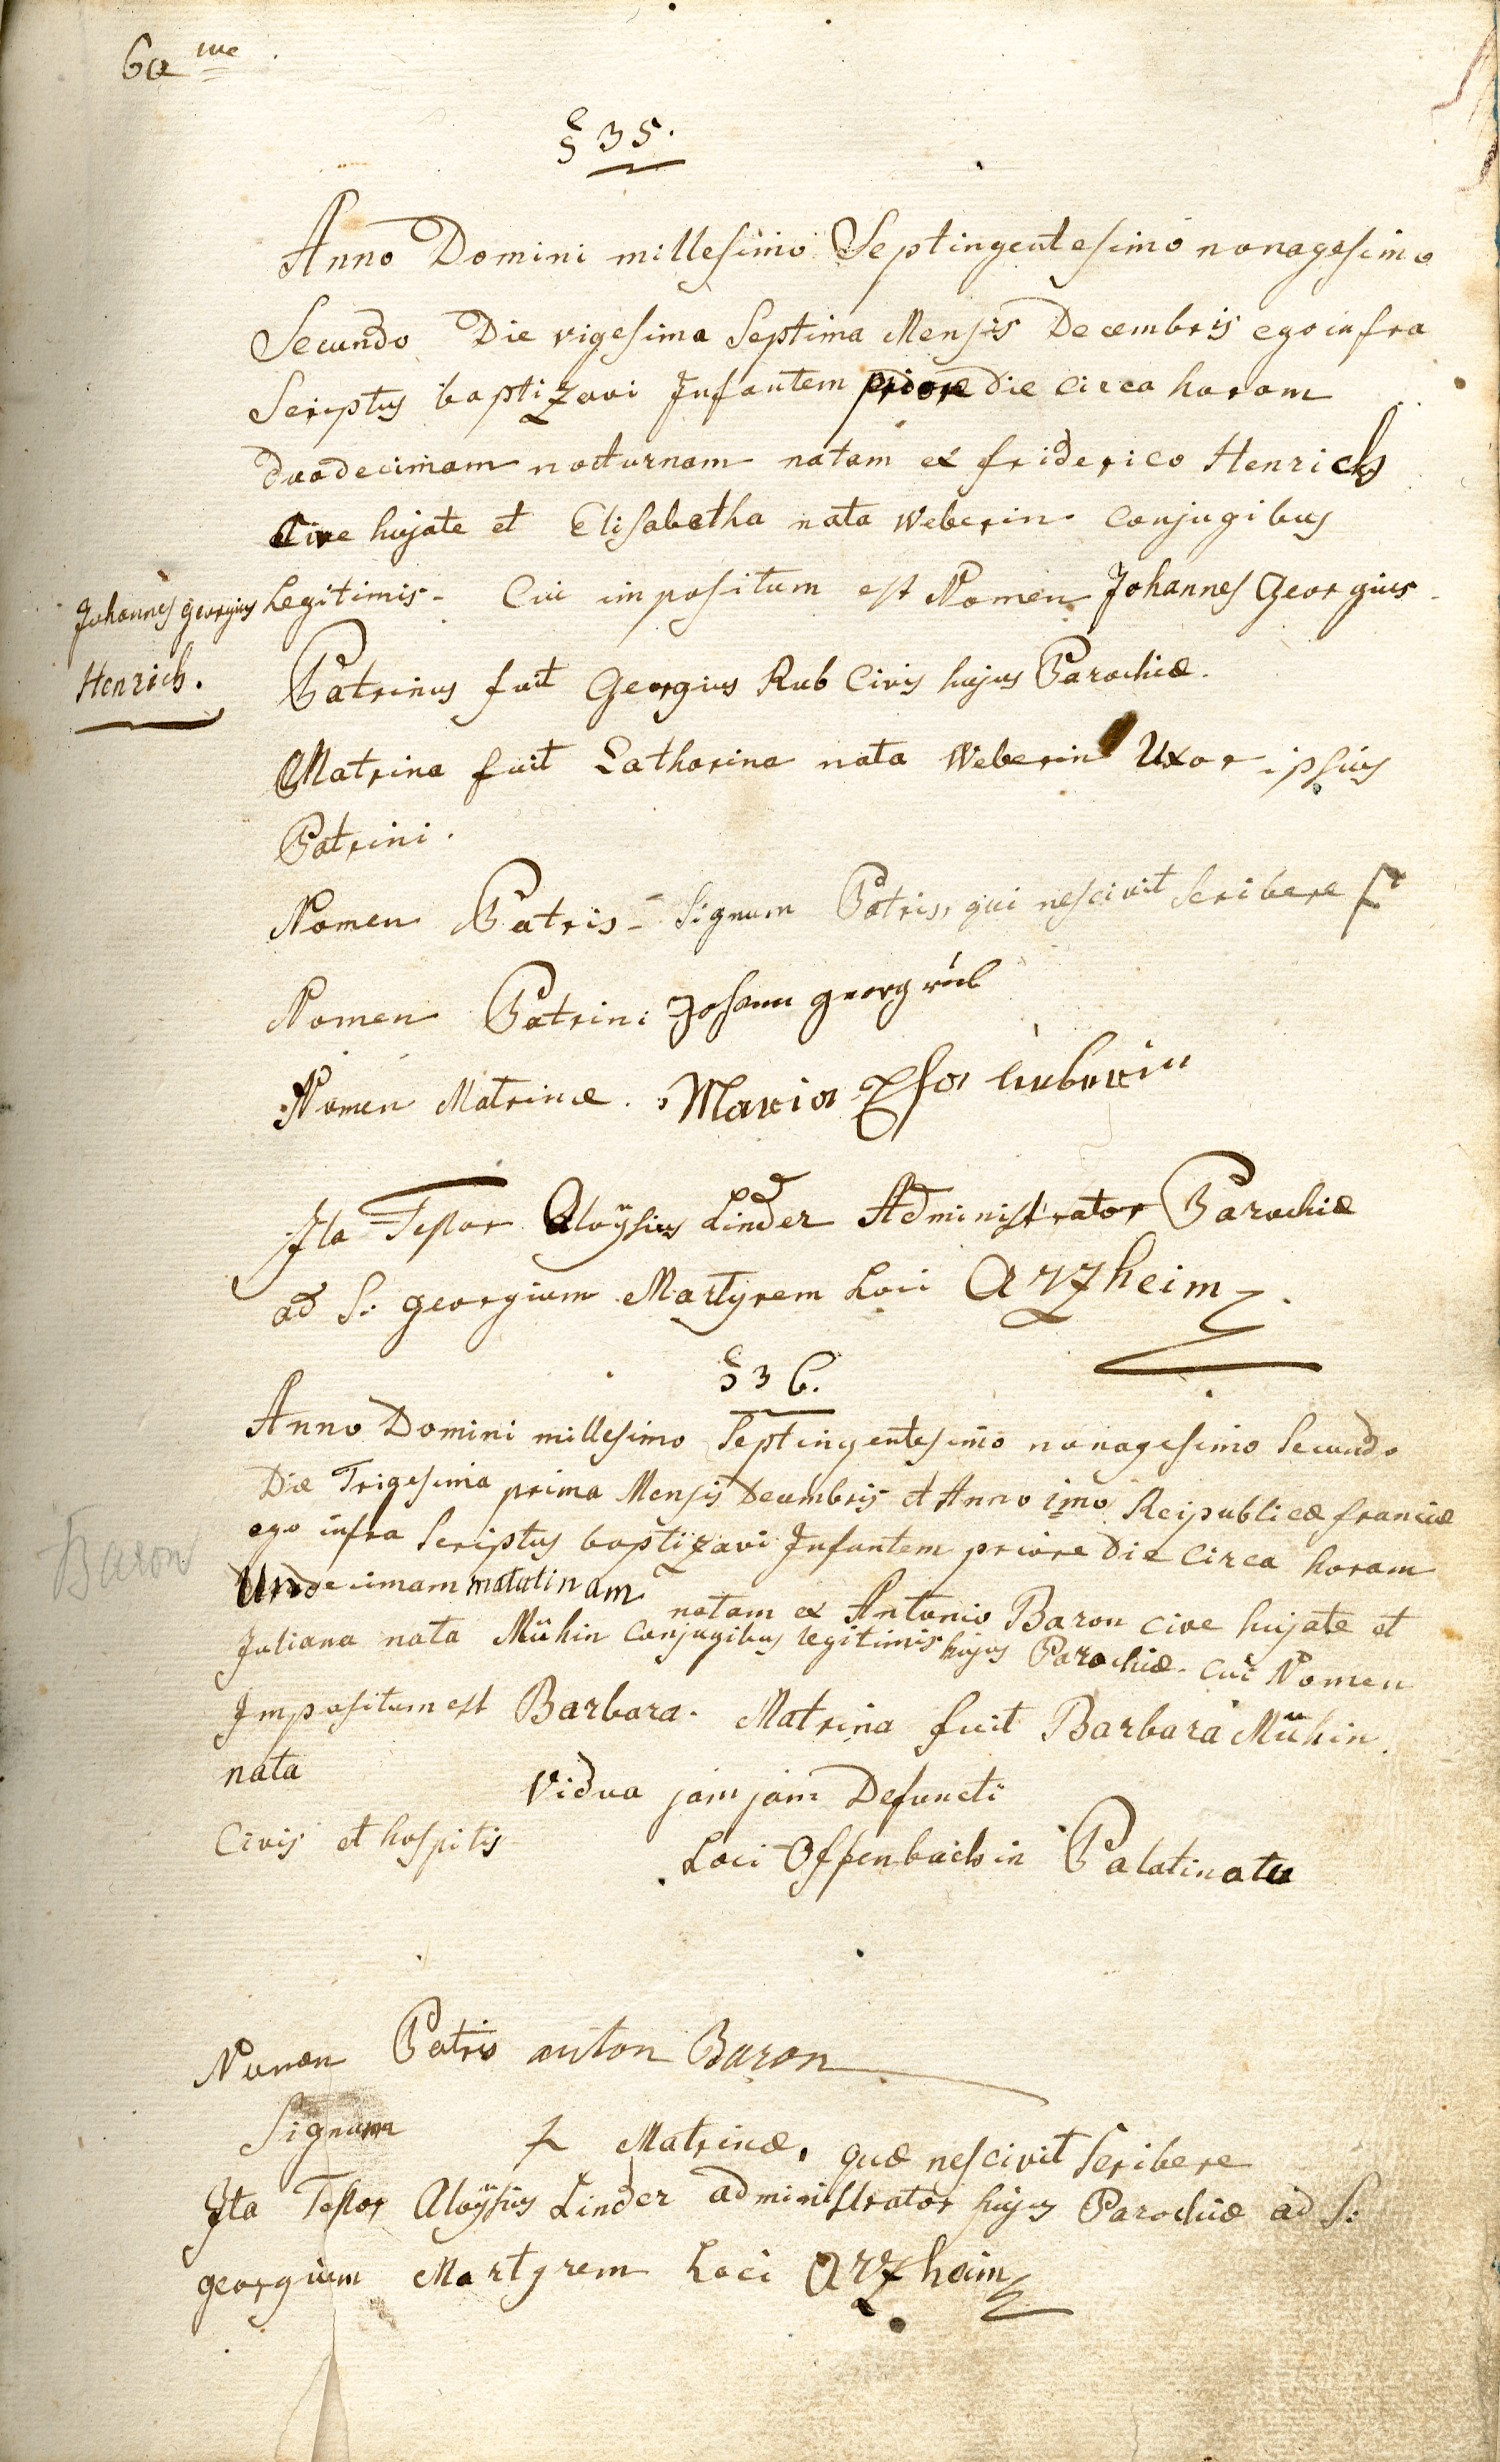 60 me
§ 35.
Anno Domini millesimo Septingentesimo nonagesimo
Secundo Die vigesima Septima Mensis Decembris ego infra
Scriptus baptizavi Infantem priore die circa horam
duodecimam nocturnam natam ex friderico Henrich
Cive hujate et Elisabetha nata Weberin conjugibus
Legitimis - Cui impositum est Nomen Johannes Georgius
Johannes georgius
Henrich.
Patrinus fuit Georgius Rub Civis hujus Parochiæ.
Matrina fuit Catharina nata Weberin Uxor ipsius
Patrini.
Nomen Patris - Signum Patris, qui nescivit Scribere
Nomen Patrini Johann georg rüb
Nomen Matrinæ. Maria
Ita Testor Aloÿsius Linder Administrator Parochiæ
ad S: georgium Martyrem Loci Arzheim
§ 36.
Anno Domini millesimo Septingentesimo nonagesimo Secundo
Die Trigesima prima Mensis Decembris et Anno imo Reipublicæ franciæ
ego infra Scriptus baptizavi Infantem priore Die Circa horam
Undecimam matutinam natam ex Antonio Baron cive hujate et
Baron
Juliana nata Mühin Conjugibus legitimis hujus Parochiæ. Cui Nomen
Impositum est Barbara. Matrina fuit Barbara Mühin
nata Vidua jam jam Defuncti
Civis et hospitis Loci Offenbach in Palatinatu
Nomen Patris anton Baron
Signum + Matrinæ, quæ nescivit Scribere
Ita Testor Aloÿsius Linder administrator hujus Parochiæ ad S:
georgium Martyrem Loci Arzheim